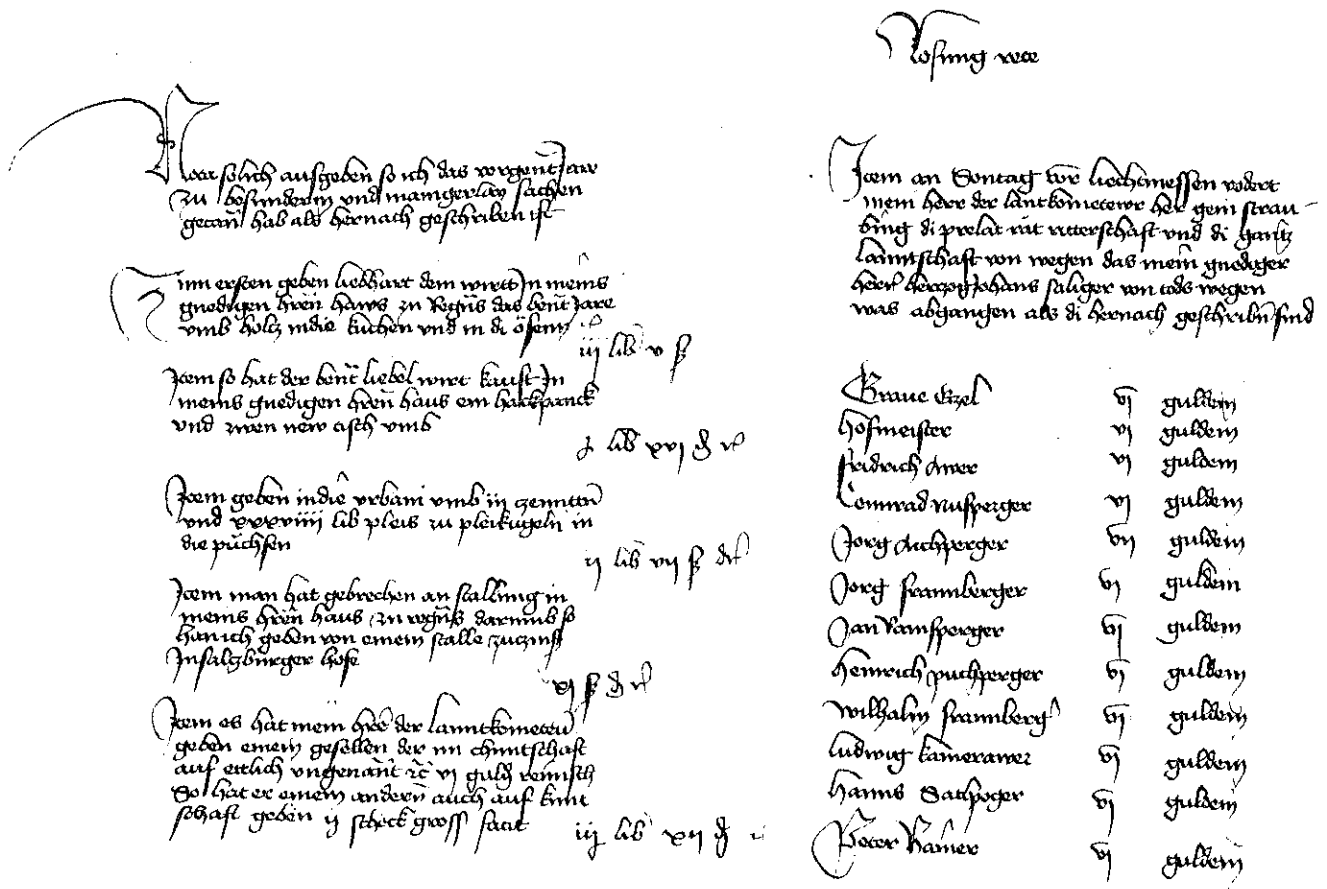 Nota solich ausgeben so ich das vorgent Jare
zu besunderin und manigerlay sachen
getan hab als hernach geschriben ist
Zum ersten geben liebhart dem wirtt In meins
gnedigen hren haws zu Regns das bent Jare
umb holtz indie kuchen und in di ofenn
iij lib v ß
Item so hat der bent liebel wirt kauft In
meins gnedigen hren haus ein hackpanck
und zwen new tisch umb
j lib xvj d
Item geben indie urbani umb iij zenntn
und xxxviiij lib pleis zu pleikugeln in
die puchsen
ij lib vij ß
Item man hat gebrechen an stallung in
meins hren haus zu regns darumb so
han ich geben von einem stalle zuczins
In salczburger hofe
xj ß d
Item es hat mein hre der lanntkometeu
geben einem gesellen der im chuntschaft
auf ettlich ungenant rc vj guld reinisch
So hat er einem andern auch auf kunt
schaft geben ij schock gross facit
iij lib xij d
Losung rete
Item an Sontag vor liechtmessen vodert
mein herr der lantkometewr her gein strau-
bing di prelat rat ritterschaft und di gantz
lanntschaft von wegen das mein gnediger
herr herczog Johans saliger von tods wegen
was abgangen als di hernach geschribn sind
Grave Etzel vj guldein
hofmeister vj guldein
fridrich Awer vj guldein
Connrad nusperger vj guldein
Jorg Aichperger vij guldein
Jorg frannberger vj guldein
Jan Ramsperger vj guldein
heinrich puchperger vj guldein
wilhalm frannberg vj guldein
ludwig kamerawer vj guldein
hanns Satlpoger vj guldein
Peter Ramer vj guldein